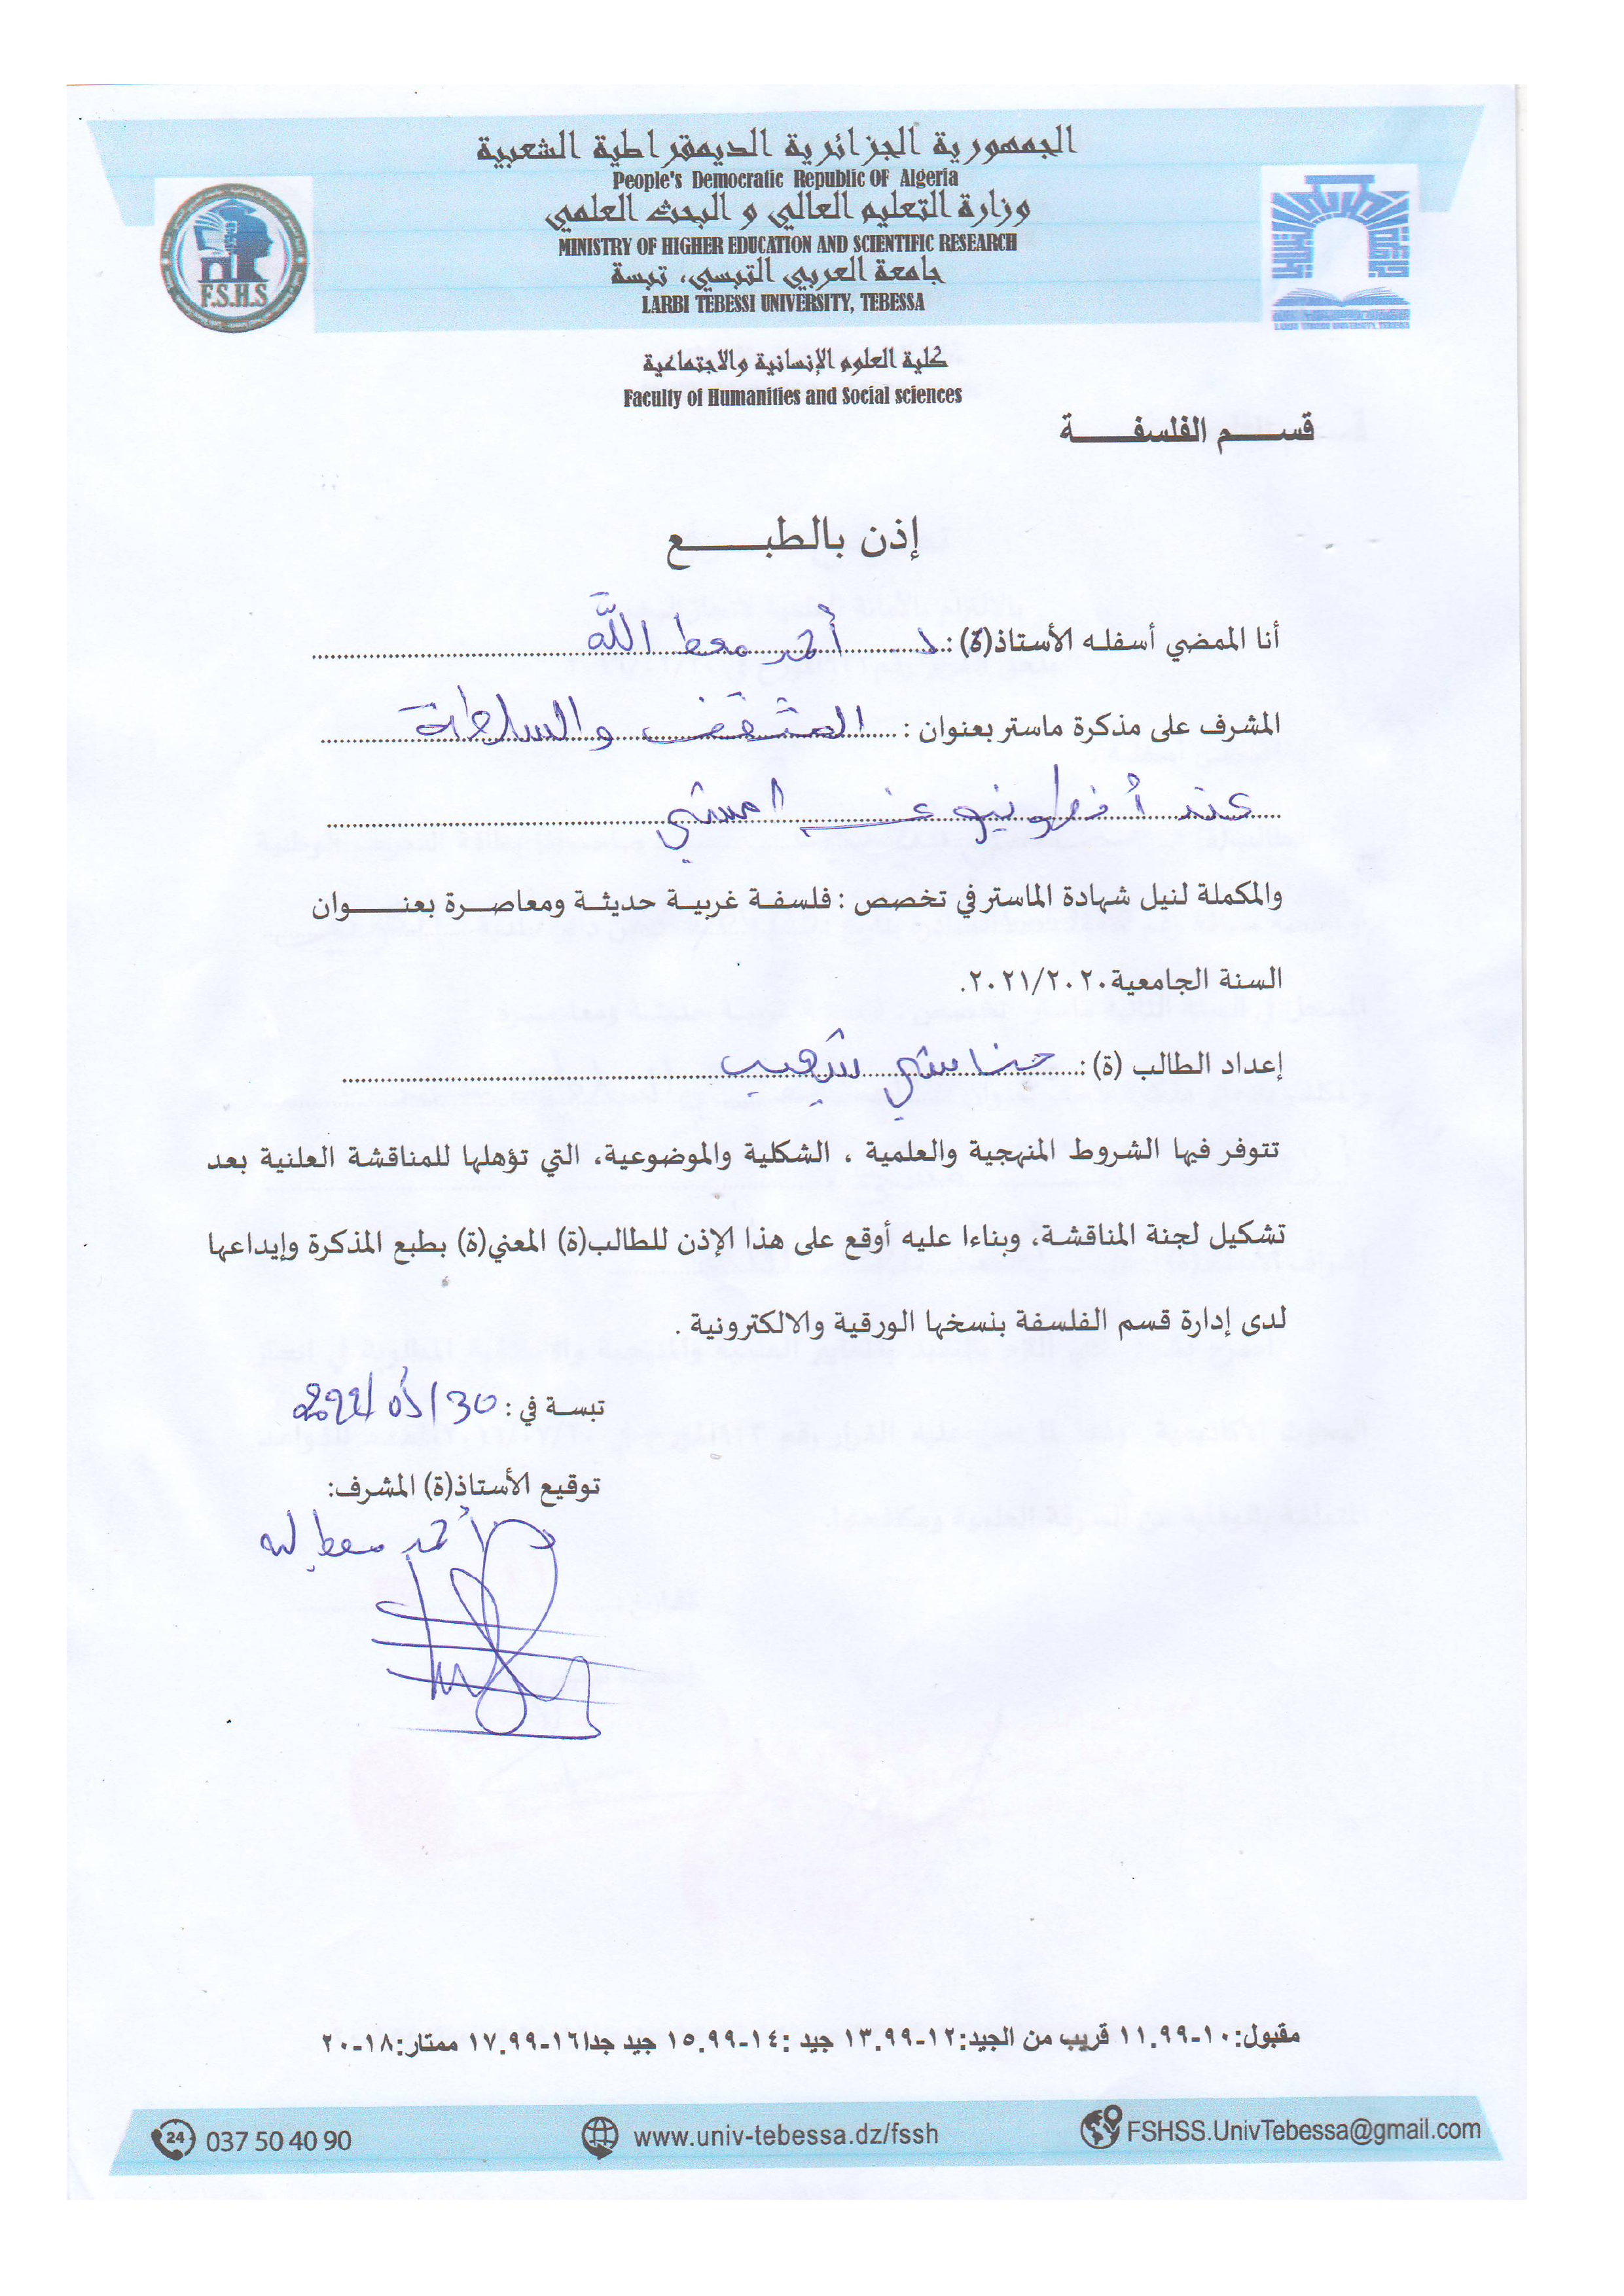 الجمهورية الجزائرية الديمقراطية الشعبية
People's Democratic Republic OF Algeria
وزارة التعليم العالي و البحث العلمي
MINISTRY OF HIGHER EDUCATION AND SCIENTIFIC RESEARCH
جامعة العربي التبسي، تبسة
LARBI TEBESSI UNIVERSITY, TEBESSA
F.S.H.S
LARBI TEBESSI UNIVERSITY, TEBESSA
كلية العلوم الإنسانية والاجتماعية
Faculty of Humanities and Social sciences
قسم الفلسفة
إذن بالطبع
أنا الممضي أسفله الأستاذ(ة): د. أحمد معط الله
المشرف على مذكرة ماستر بعنوان : المثقف والسلطة
عند أنطونيو غرامشي
والمكملة لنيل شهادة الماستر في تخصص : فلسفة غربية حديثة ومعاصرة بعنوان
السنة الجامعية ٢٠٢١/٢٠٢٠.
إعداد الطالب (ة): حناشي شهيب
تتوفر فيها الشروط المنهجية والعلمية ، الشكلية والموضوعية، التي تؤهلها للمناقشة العلنية بعد
تشكيل لجنة المناقشة، وبناءا عليه أوقع على هذا الإذن للطالب(ة) المعني(ة) بطبع المذكرة وإيداعها
لدى إدارة قسم الفلسفة بنسخها الورقية والالكترونية .
تبسة في : 30/05/
توقيع الأستاذ(ة) المشرف:
أحمد معط الله
مقبول:١٠-١١.٩٩ قريب من الجيد:١٢-١٣.٩٩ جيد :١٤-١٥.٩٩ جيد جدا١٦-١٧.٩٩ ممتار:١٨-٢٠
24 037 50 40 90 www.univ-tebessa.dz/fssh FSHSS.UnivTebessa@gmail.com